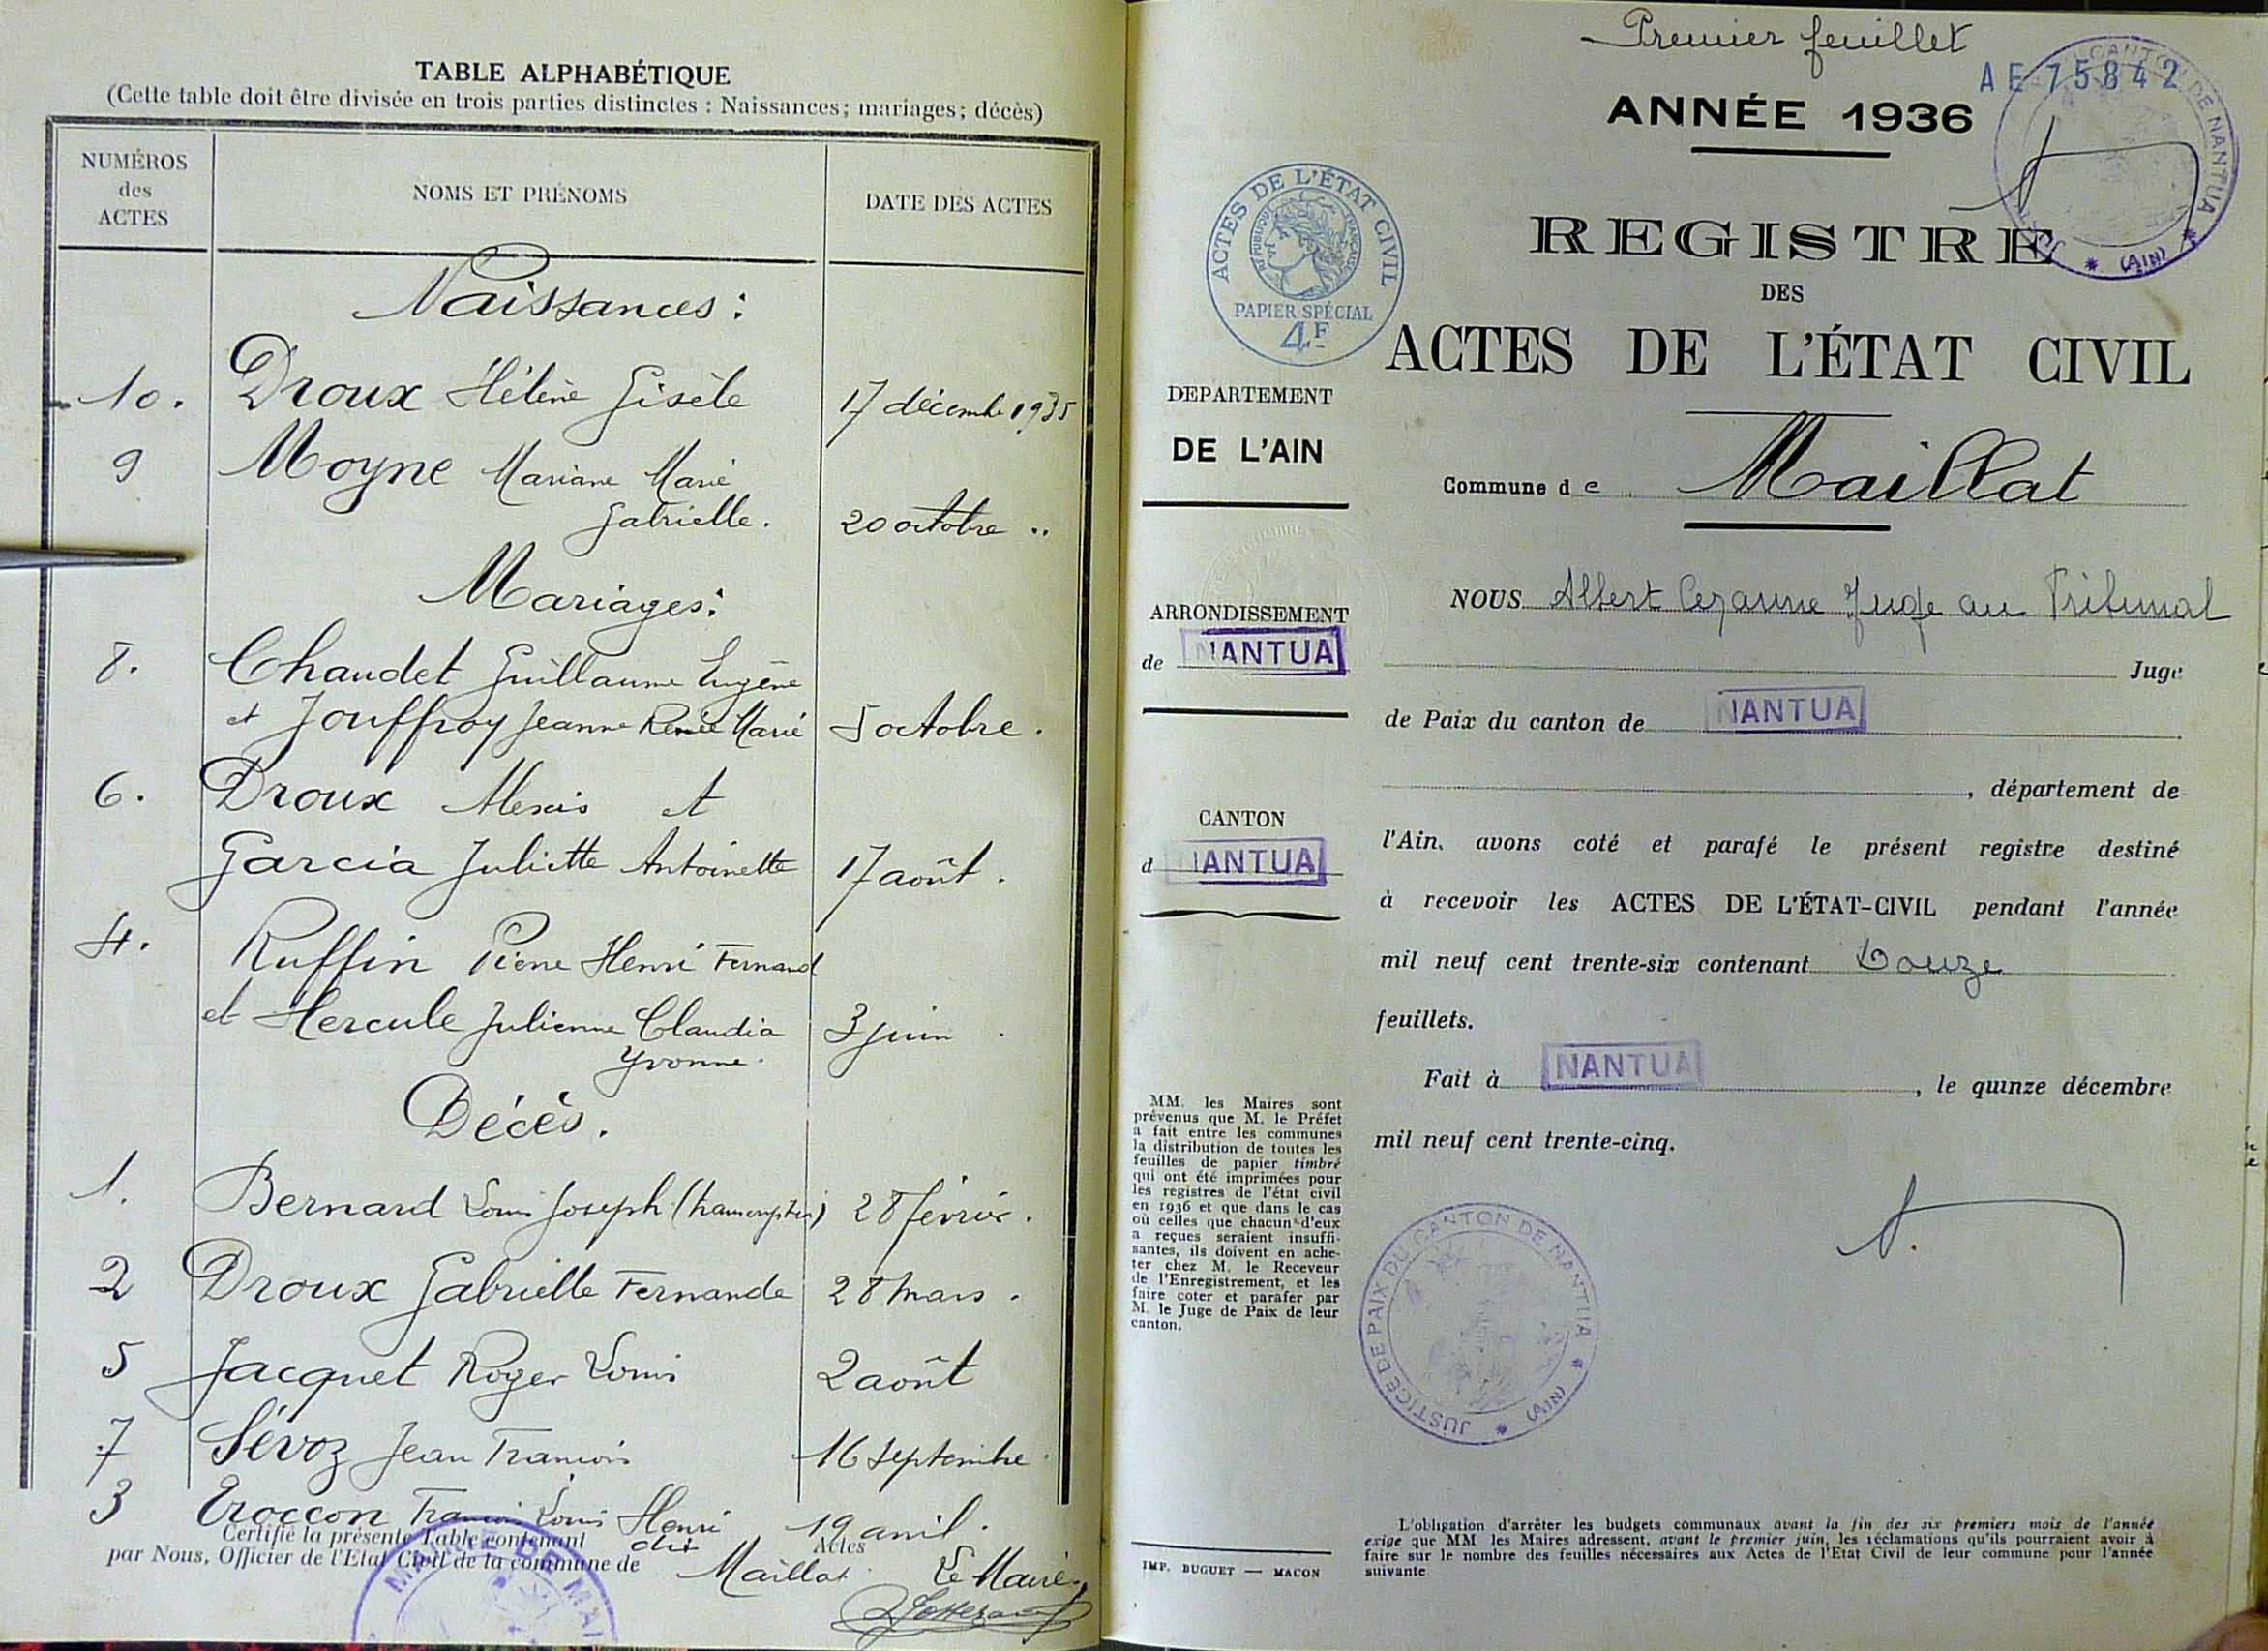 TABLE ALPHABÉTIQUE
(Cette table doit être divisée en trois parties distinctes : Naissances; mariages; décès)
NUMÉROS des ACTES
NOMS ET PRÉNOMS
DATE DES ACTES
Naissances :
10. Droux Hélène Gisèle 17 décembre 1935
9 Moyne Mariane Marie
Gabrielle. 20 octobre ..
Mariages :
8. Chaudet Guillaume Eugène
et Jouffroy Jeanne Renée Marie 5 octobre.
6. Droux Alexis et
Garcia Juliette Antoinette 17 août.
4. Ruffin Pierre Henri Fernand
et Hercule Julienne Claudia 3 juin
Yvonne.
Décès.
1. Bernard Louis Joseph (transcription) 28 février.
2 Droux Gabrielle Fernande 28 mars.
5 Jacquet Roger Louis 2 août
7 Sévoz Jean François 16 septembre
3 Troccon François Louis Henri 19 avril.
Certifié la présente Table contenant dix Actes
par Nous, Officier de l'Etat Civil de la commune de Maillat. Le Maire,
MAI
Premier feuillet
AE 75842
CANTON DE NANTUA
(AIN)
ANNÉE 1936
ACTES DE L'ÉTAT CIVIL
RÉPUBLIQUE FRANÇAISE
PAPIER SPÉCIAL
4F
REGISTRE
DES
ACTES DE L'ÉTAT CIVIL
DEPARTEMENT
DE L'AIN
Commune de Maillat
ARRONDISSEMENT
de NANTUA
CANTON
d NANTUA
NOUS Albert Cezanne Juge au Tribunal
Juge
de Paix du canton de NANTUA
, département de
l'Ain, avons coté et parafé le présent registre destiné
à recevoir les ACTES DE L'ÉTAT-CIVIL pendant l'année
mil neuf cent trente-six contenant Douze
feuillets.
Fait à NANTUA, le quinze décembre
mil neuf cent trente-cinq.
MM. les Maires sont
prévenus que M. le Préfet
a fait entre les communes
la distribution de toutes les
feuilles de papier timbré
qui ont été imprimées pour
les registres de l'état civil
en 1936 et que dans le cas
où celles que chacun d'eux
a reçues seraient insuffi-
santes, ils doivent en ache-
ter chez M. le Receveur
de l'Enregistrement, et les
faire coter et parafer par
M. le Juge de Paix de leur
canton.
JUSTICE DE PAIX DU CANTON DE NANTUA
(AIN)
IMP. BUGUET — MACON
L'obligation d'arrêter les budgets communaux avant la fin des six premiers mois de l'année
exige que MM les Maires adressent, avant le premier juin, les réclamations qu'ils pourraient avoir à
faire sur le nombre des feuilles nécessaires aux Actes de l'Etat Civil de leur commune pour l'année
suivante